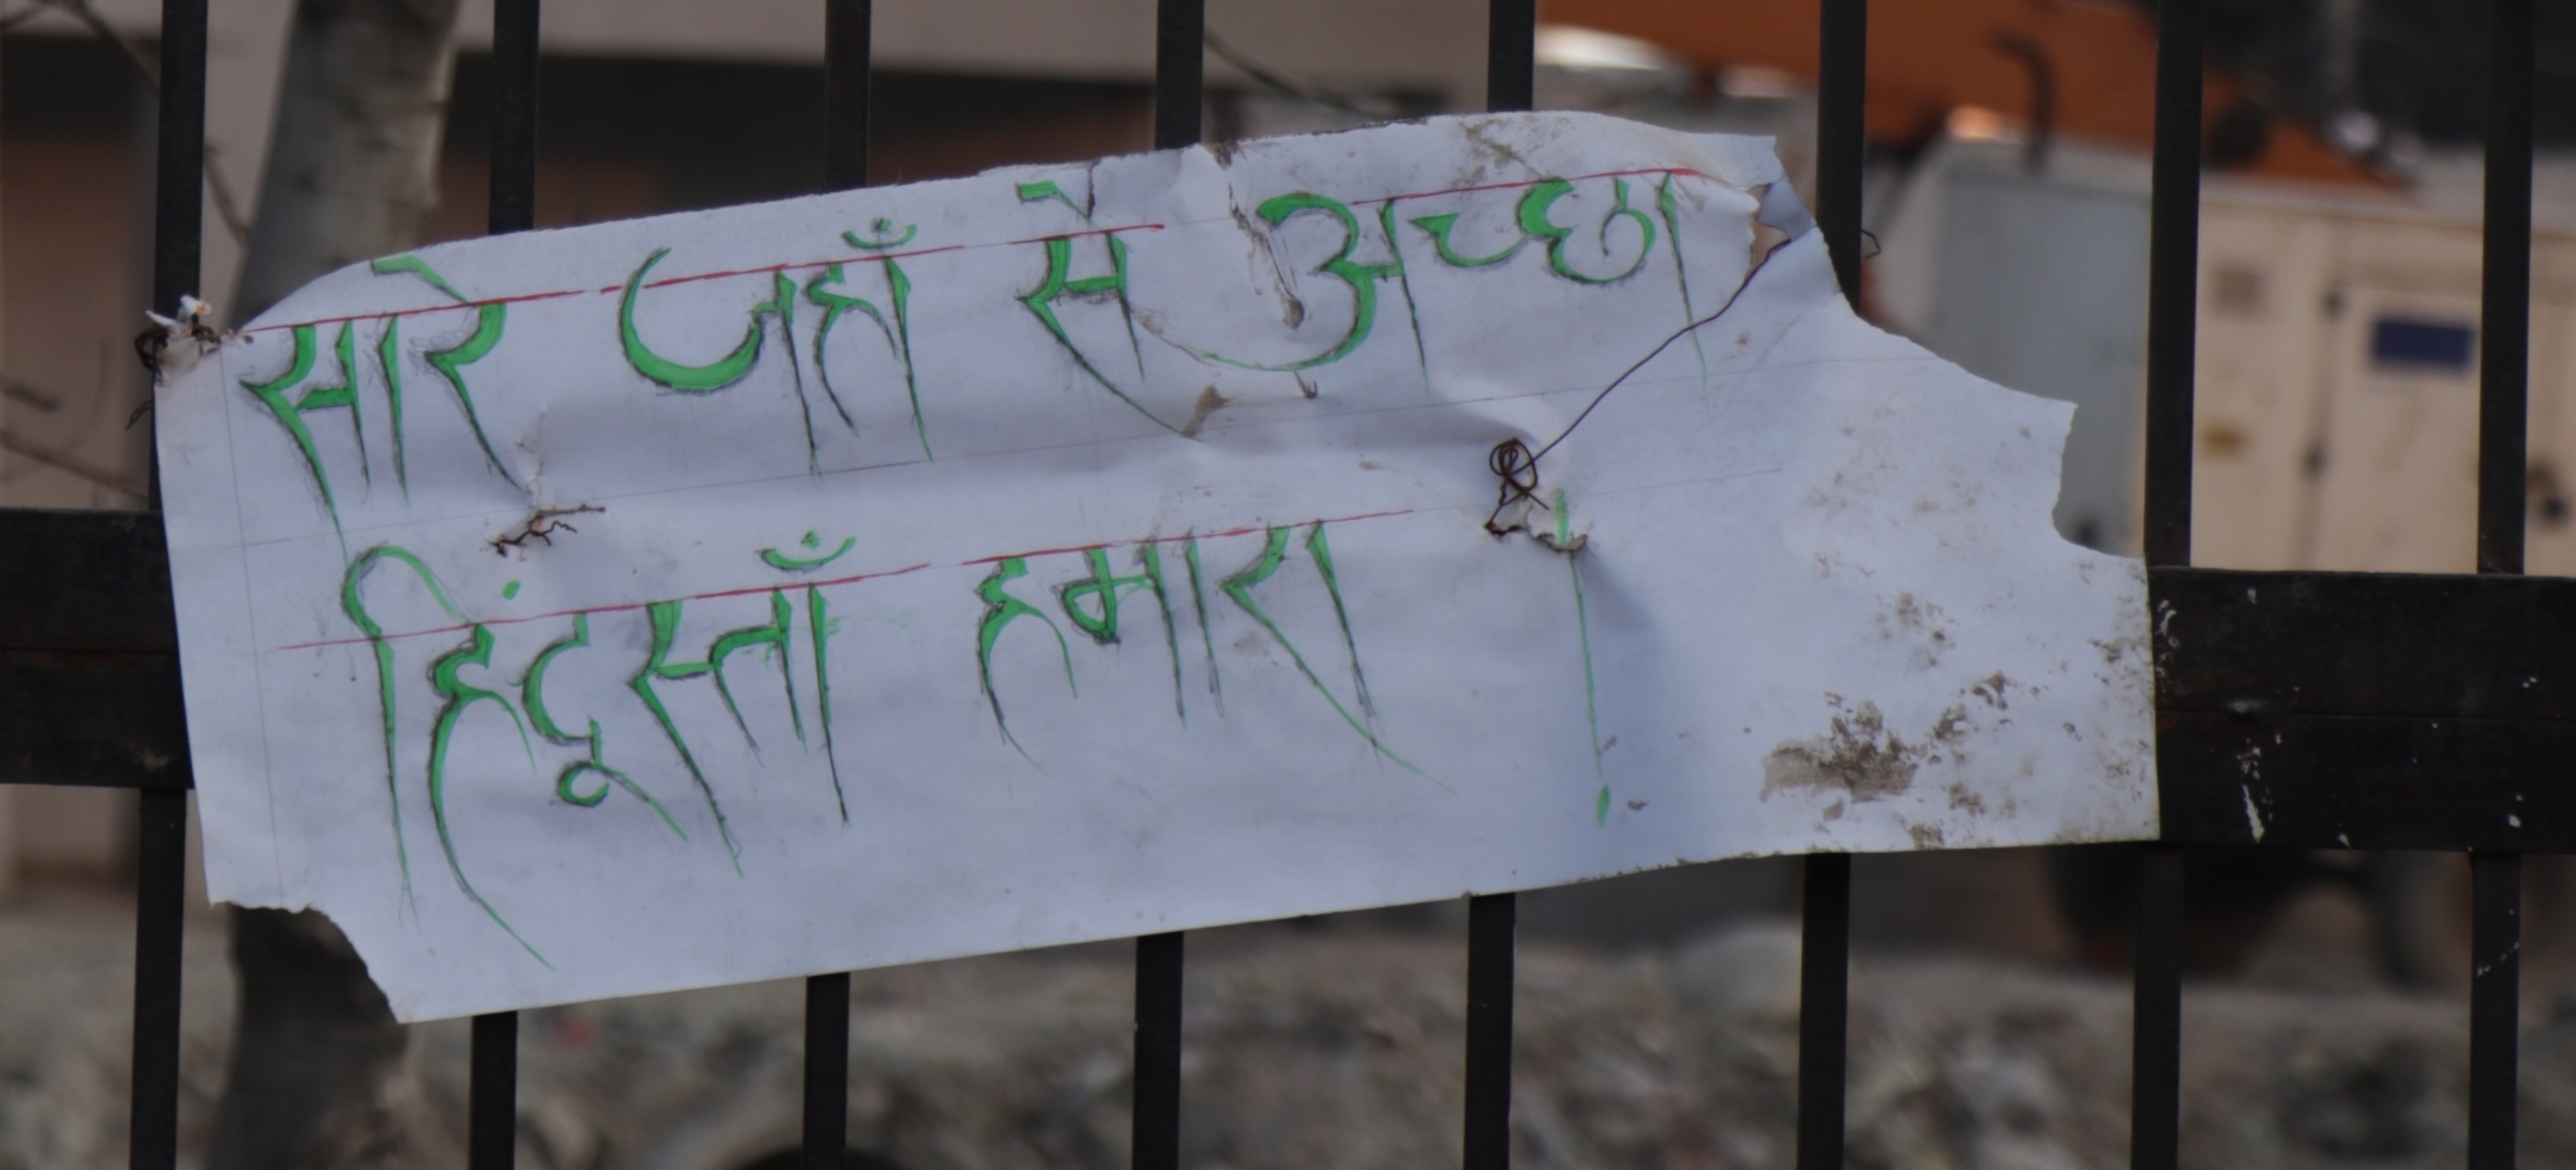 सारे जहाँ से अच्छा
हिंदूस्ताँ हमारा !